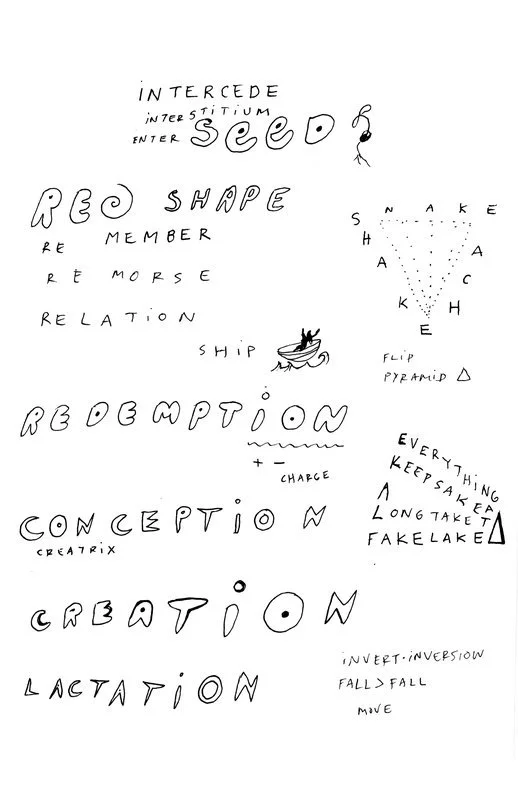 INTERCEDE
INTERSTITIUM
ENTER SEED
RE SHAPE
RE MEMBER
RE MORSE
RELATION
SHIP
REDEMPTION
+ −
CHARGE
CONCEPTION
CREATRIX
CREATION
LACTATION
SNAKE
SHAKE
ACHE
FLIP
PYRAMID △
EVERYTHING
KEEPSAKE
LONG TAKE
FAKE LAKE
INVERT·INVERSION
FALL > FALL
MOVE